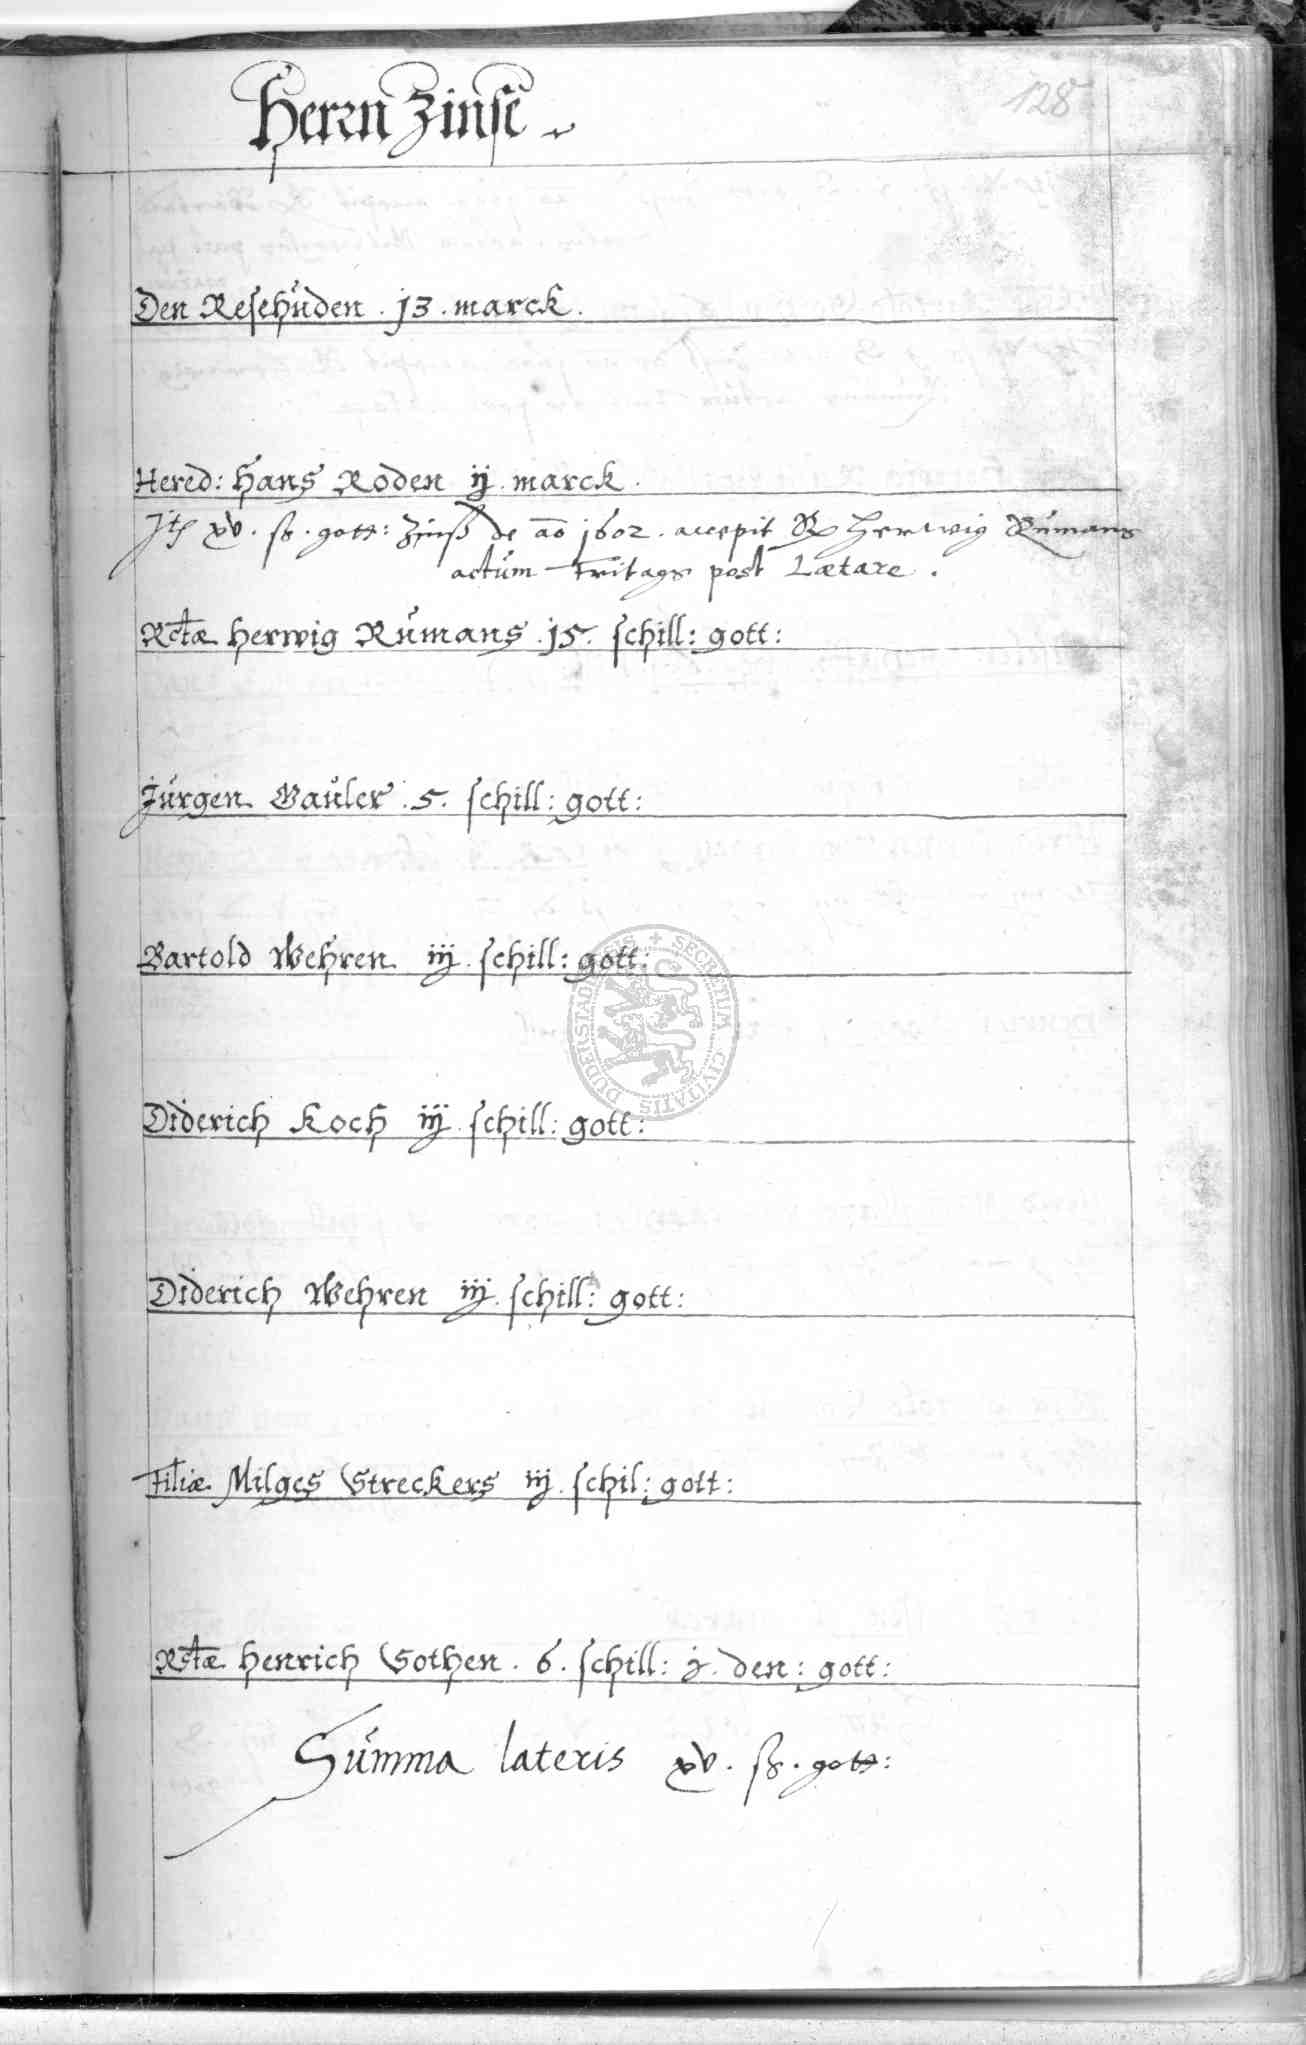 Herrn Zinse
128
Den Resehuden . 13 . marck .
Hered: Hans Roden ij marck .
xv . ß . gott: Zinß de ao 1602 . accepit R Herwig Rumans
actum Fritags post Lætare .
Rctæ Herwig Rumans . 15 . schill: gott:
Jurgen Gauler . 5 . schill: gott:
Bartold Wehren iij . schill: gott:
Diderich Koch iij . schill: gott:
Diderich Wehren iij . schill: gott:
Filiæ Milges Streckers iij . schil: gott:
Rctæ Henrich Gothen . 6 . schill: j . den: gott:
Summa lateris xv . ß . gott:
SECRETUM CIVITATIS DUDERSTADENSIS